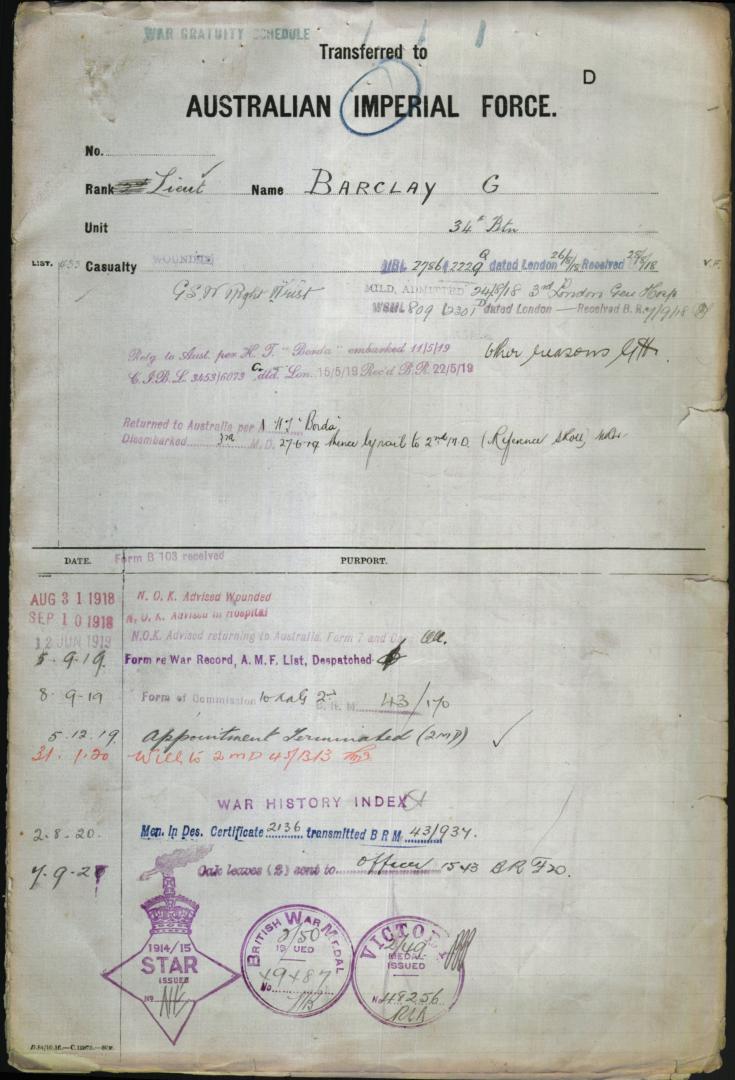 WAR GRATUITY SCHEDULE
Transferred to
D
AUSTRALIAN IMPERIAL FORCE.
No.
Rank Lieut Name BARCLAY G
Unit 34th Btn
LIST. 455 Casualty WOUNDED MBL 2786 2229 Q dated London 26/8/18 Received 29/8/18 V.F.
G.S.W Right Wrist MILD, ADMITTED 24/8/18 3rd London Gen Hosp
WSML 809 2301 D dated London — Received B.R. 7/9/18
Retg. to Aust. per H. T. "Borda" embarked 11/5/19 other reasons
C.I.B.L. 3453/6073 C. dtd. Lon. 15/5/19 Rec'd B.R. 22/5/19
Returned to Australia per HT "Borda"
Disembarked 3rd M.D. 27-6-19 thence by rail to 2nd M.D.
Form B 103 received
DATE. PURPORT.
AUG 31 1918 N. O. K. Advised Wounded
SEP 10 1918 N. O. K. Advised in Hospital
12 JUN 1919 N.O.K. Advised returning to Australia. Form 7 and
5.9.19. Form re War Record, A. M. F. List, Despatched
8.9.19 Form of Commission 43/170
5.12.19. Appointment Terminated (2MD)
31.1.20 Will to 2 MD
WAR HISTORY INDEX
2.8.20. Men. in Des. Certificate 2136 transmitted B R M 43/937.
Oak leaves (2) sent to officer 1543 BRF20.
1914/15
STAR
ISSUED
No
BRITISH WAR MEDAL
2/50
ISSUED
No. 49487
VICTORY
2/49
MEDAL
ISSUED
No 48256